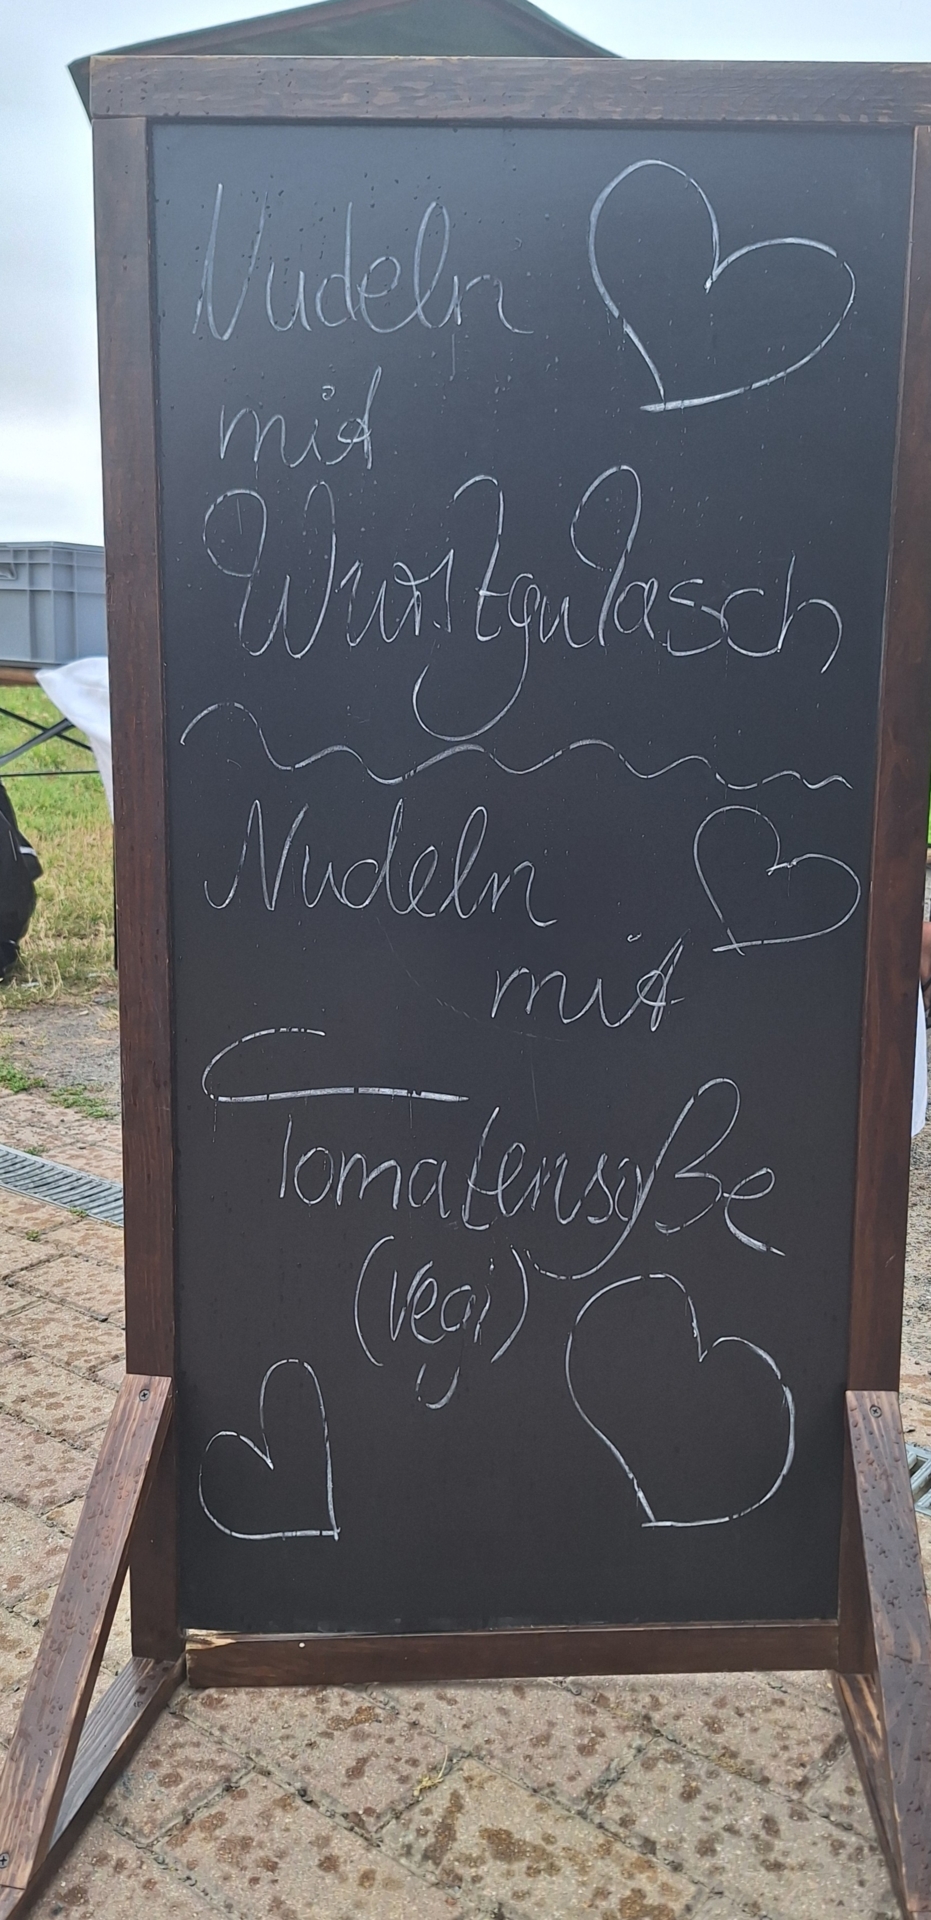 Nudeln
mit
Wurstgulasch
Nudeln
mit
Tomatensoße
(Vegi)